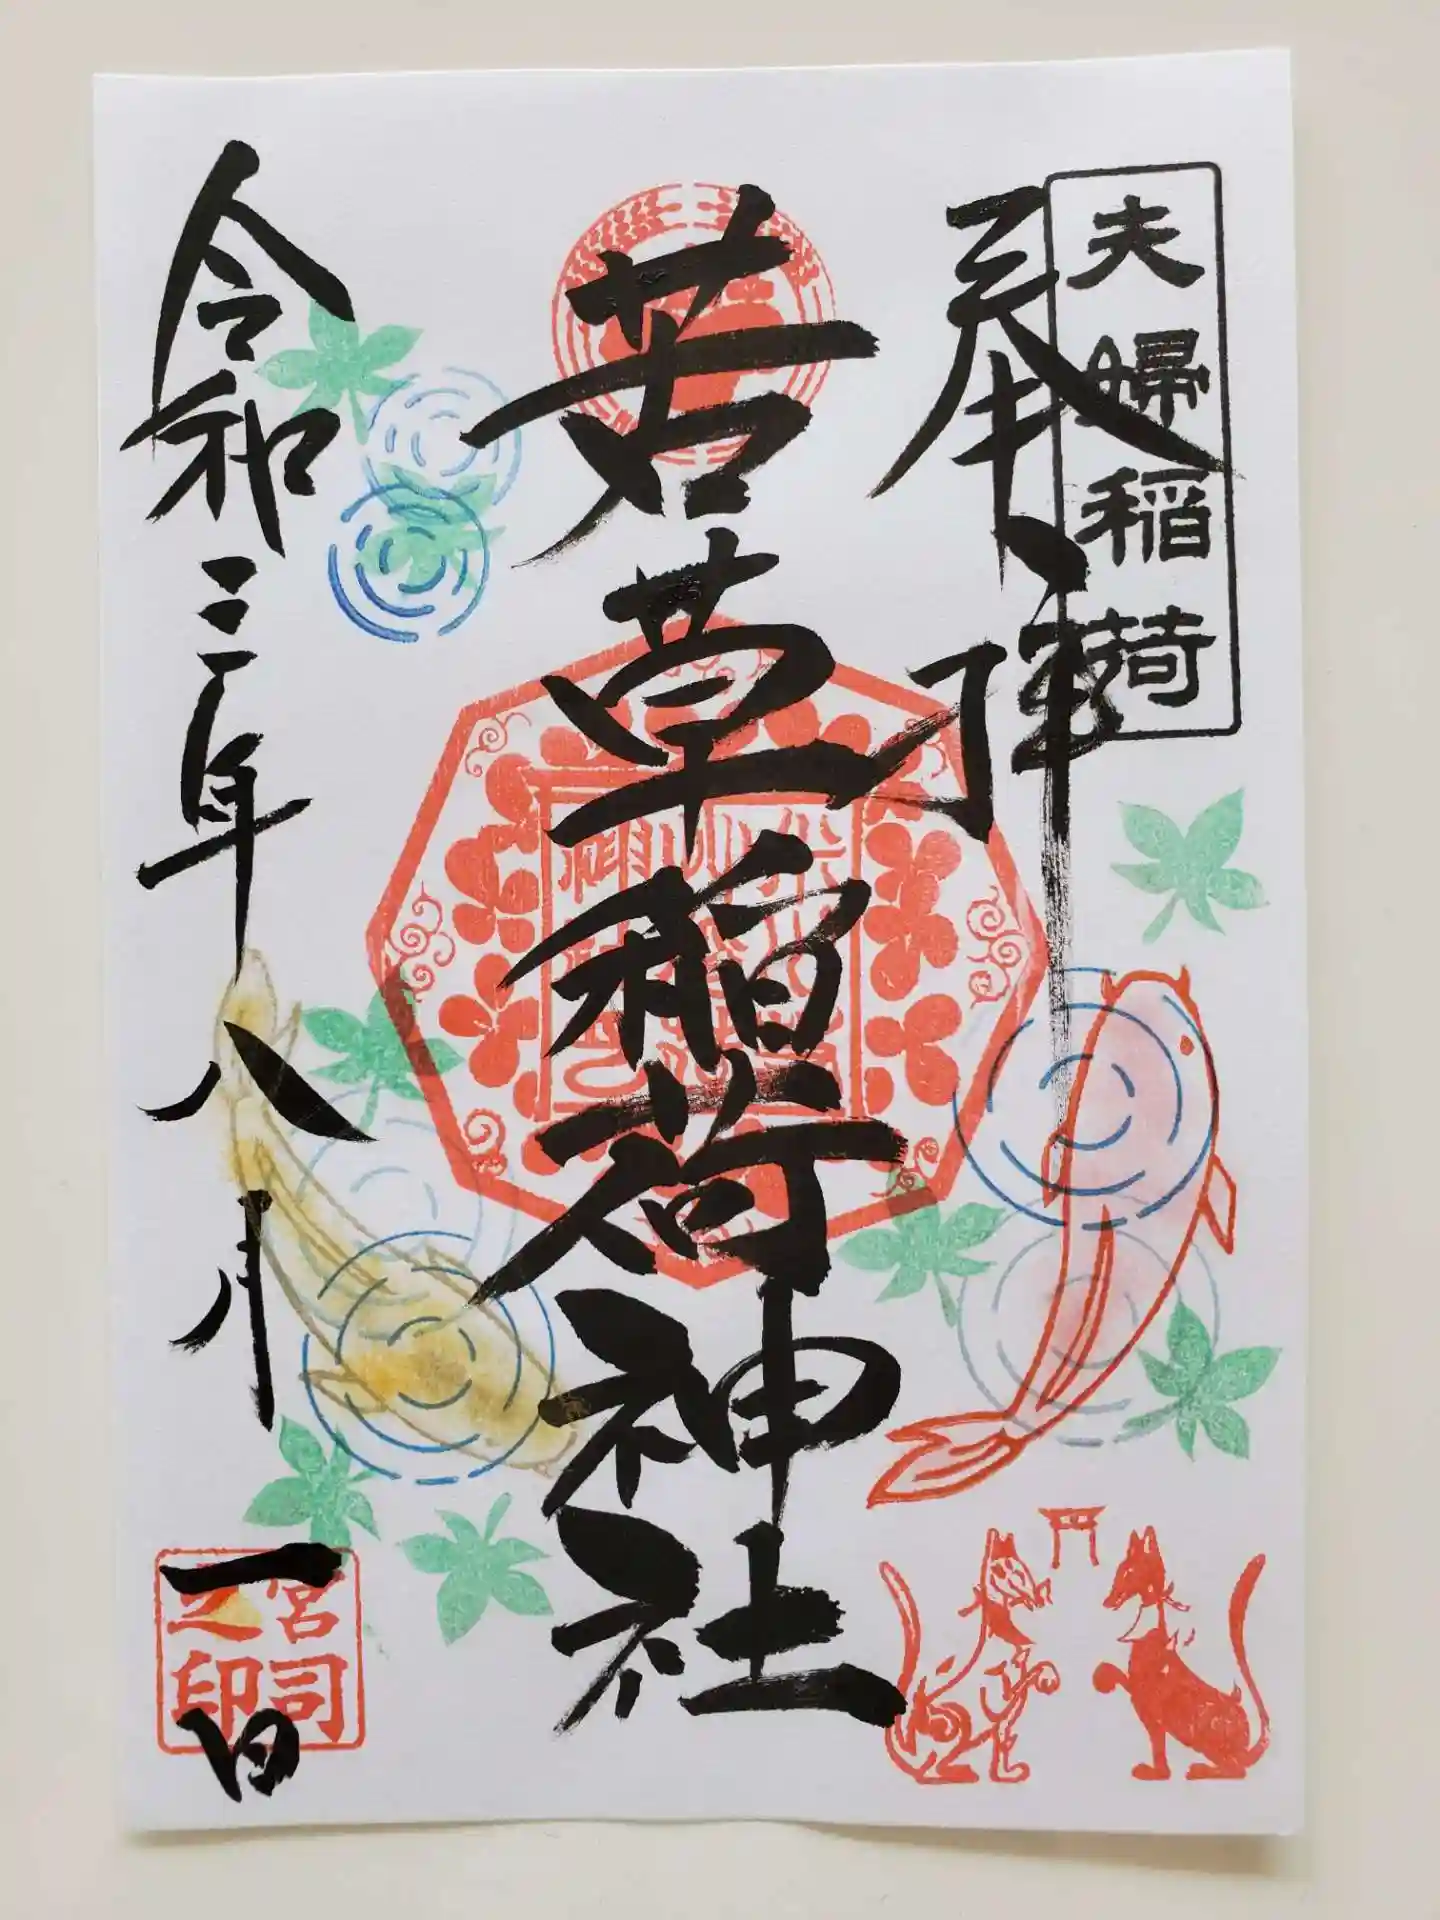 夫婦稲荷
奉拝
若草稲荷神社
令和三年八月一日
宮司
之印